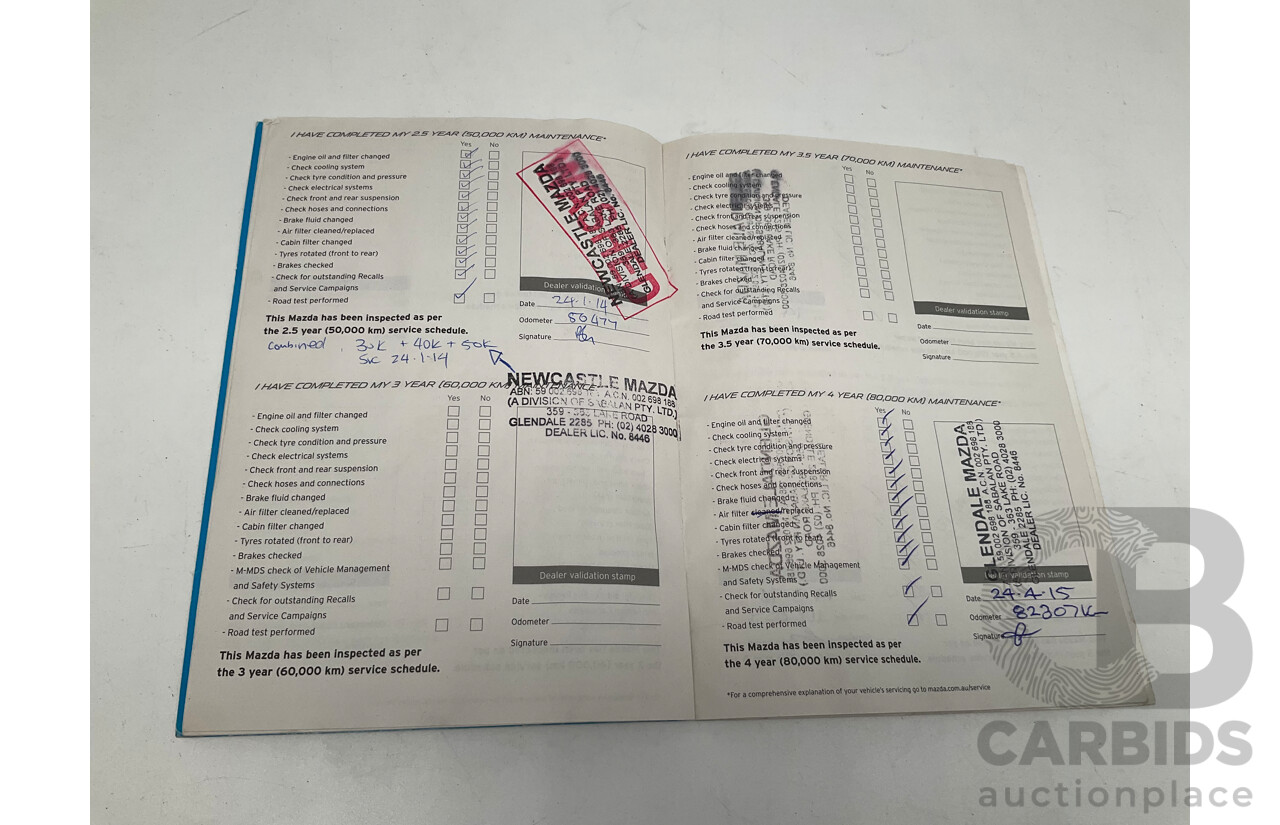 I HAVE COMPLETED MY 2.5 YEAR (50,000 KM) MAINTENANCE*
Yes No
- Engine oil and filter changed
- Check cooling system
- Check tyre condition and pressure
- Check electrical systems
- Check front and rear suspension
- Check hoses and connections
- Brake fluid changed
- Air filter cleaned/replaced
- Cabin filter changed
- Tyres rotated (front to rear)
- Brakes checked
- Check for outstanding Recalls
and Service Campaigns
- Road test performed
NEWCASTLE MAZDA
Dealer validation
Date 24.1.14
Odometer 50477
Signature
This Mazda has been inspected as per
the 2.5 year (50,000 km) service schedule.
Combined 30K + 40K + 50K
Svc 24.1.14
I HAVE COMPLETED MY 3 YEAR (60,000 KM) MAINTENANCE*
Yes No
- Engine oil and filter changed
- Check cooling system
- Check tyre condition and pressure
- Check electrical systems
- Check front and rear suspension
- Check hoses and connections
- Brake fluid changed
- Air filter cleaned/replaced
- Cabin filter changed
- Tyres rotated (front to rear)
- Brakes checked
- M-MDS check of Vehicle Management
and Safety Systems
- Check for outstanding Recalls
and Service Campaigns
- Road test performed
NEWCASTLE MAZDA
ABN: 59 002 698 188 A.C.N. 002 698 188
(A DIVISION OF SABALAN PTY. LTD.)
359 - 363 LAKE ROAD
GLENDALE 2285 PH: (02) 4028 3000
DEALER LIC. No. 8446
Dealer validation stamp
Date
Odometer
Signature
This Mazda has been inspected as per
the 3 year (60,000 km) service schedule.
I HAVE COMPLETED MY 3.5 YEAR (70,000 KM) MAINTENANCE*
Yes No
- Engine oil and filter changed
- Check cooling system
- Check tyre condition and pressure
- Check electrical systems
- Check front and rear suspension
- Check hoses and connections
- Air filter cleaned/replaced
- Brake fluid changed
- Cabin filter changed
- Tyres rotated (front to rear)
- Brakes checked
- Check for outstanding Recalls
and Service Campaigns
- Road test performed
Dealer validation stamp
Date
Odometer
Signature
This Mazda has been inspected as per
the 3.5 year (70,000 km) service schedule.
I HAVE COMPLETED MY 4 YEAR (80,000 KM) MAINTENANCE*
Yes No
- Engine oil and filter changed
- Check cooling system
- Check tyre condition and pressure
- Check electrical systems
- Check front and rear suspension
- Check hoses and connections
- Brake fluid changed
- Air filter cleaned/replaced
- Cabin filter changed
- Tyres rotated (front to rear)
- Brakes checked
- M-MDS check of Vehicle Management
and Safety Systems
- Check for outstanding Recalls
and Service Campaigns
- Road test performed
GLENDALE MAZDA
59 002 698 188 A.C.N. 002 698 188
DIVISION OF SABALAN PTY. LTD)
359 - 363 LAKE ROAD
GLENDALE 2285 PH: (02) 4028 3000
DEALER LIC. No. 8446
validation stamp
Date 24.4.15
Odometer 82307K
Signature
This Mazda has been inspected as per
the 4 year (80,000 km) service schedule.
*For a comprehensive explanation of your vehicle's servicing go to mazda.com.au/service
CB
CARBIDS
auctionplace